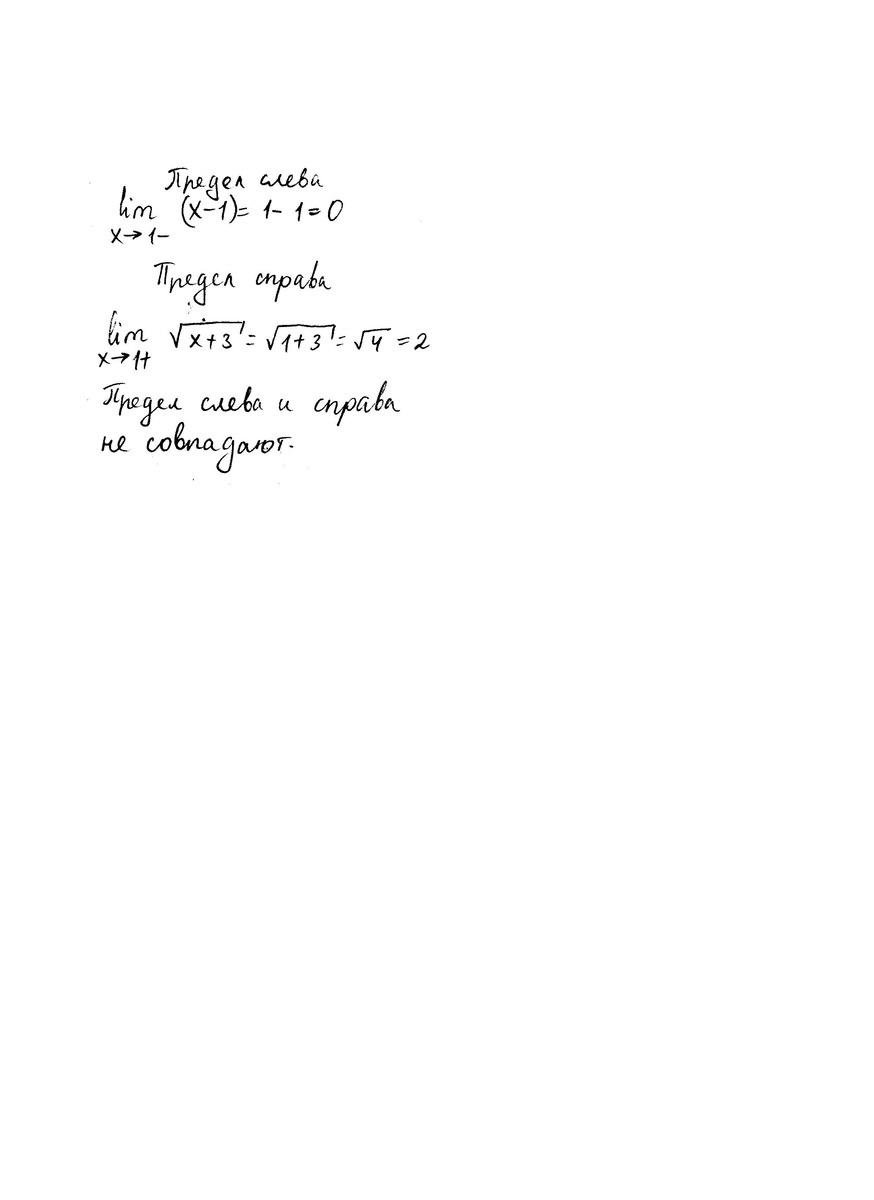 Предел слева
lim (x-1)= 1-1=0
x→1-
Предел справа
lim √x+3 = √1+3 = √4 = 2
x→1+
Предел слева и справа
не совпадают.